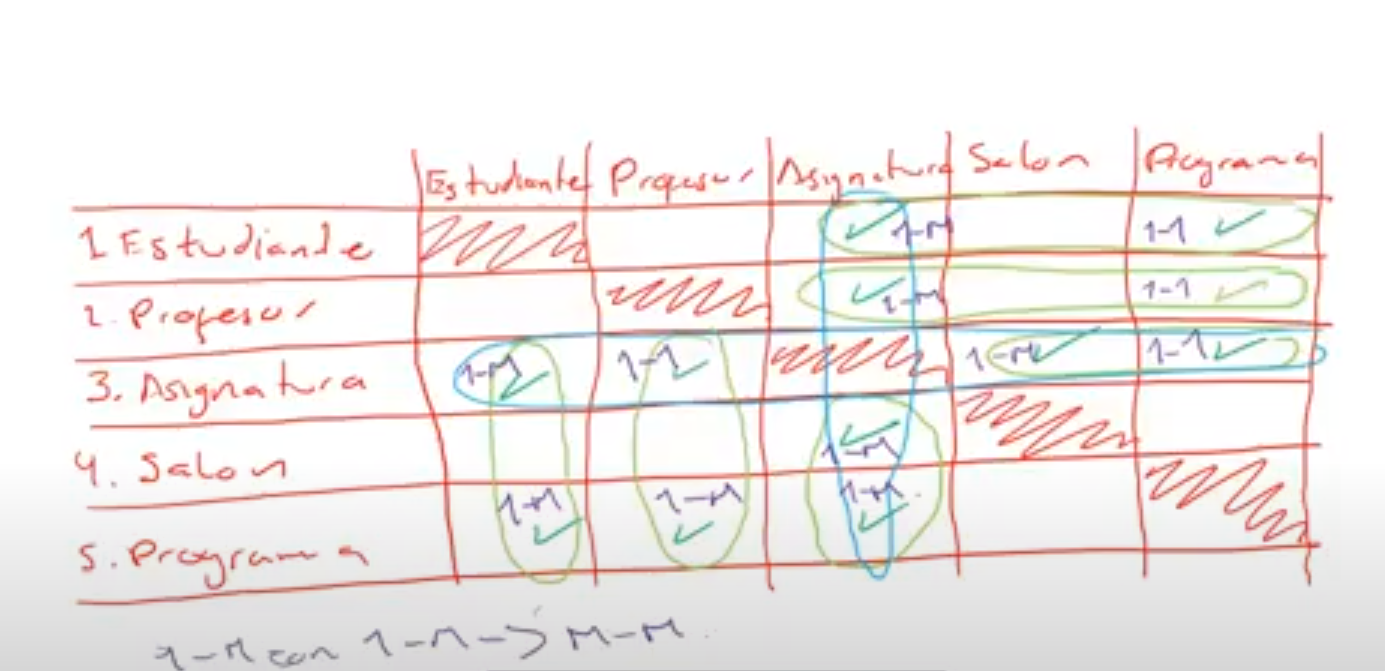 Estudiante Profesor Asignatura Salon Programa
1 Estudiante 1-M 1-1
2. Profesor 1-M 1-1
3. Asignatura 1-M 1-1 1-M 1-1
4. Salon 1-M
5. Programa 1-M 1-M 1-M
1-M con 1-M -> M-M